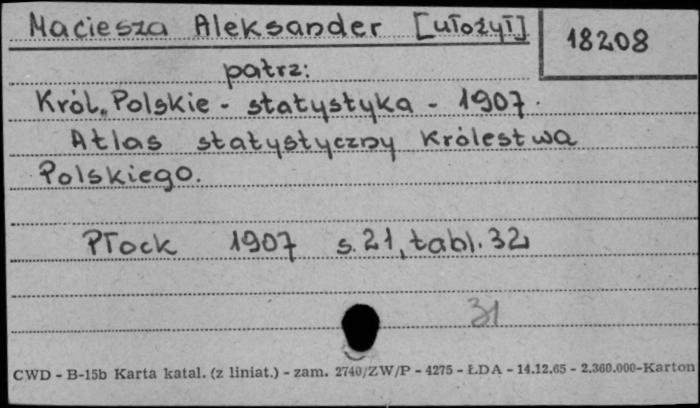 Maciesza Aleksander [ułożył]
18208
patrz:
Król. Polskie - statystyka - 1907.
Atlas statystyczny Królestwa
Polskiego.
Płock 1907 s. 21, tabl. 32
31
CWD - B-15b Karta katal. (z liniat.) - zam. 2740/ZW/P - 4275 - ŁDA - 14.12.65 - 2.360.000-Karton